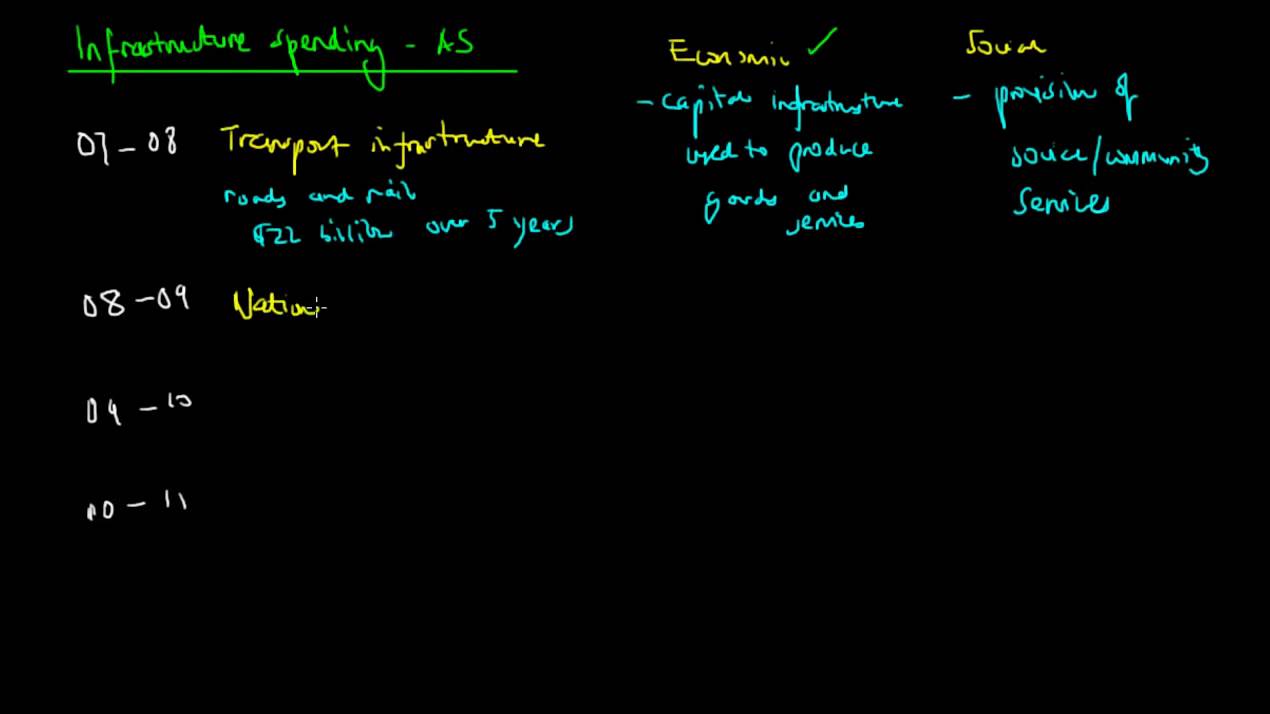 Infrastructure spending - AS
07 - 08 Transport infrastructure
roads and rail
$22 billion over 5 years
08 - 09 Nation
09 - 10
10 - 11
Economic ✓
- capital infrastructure
used to produce
goods and
services
Social
- provision of
social/community
services